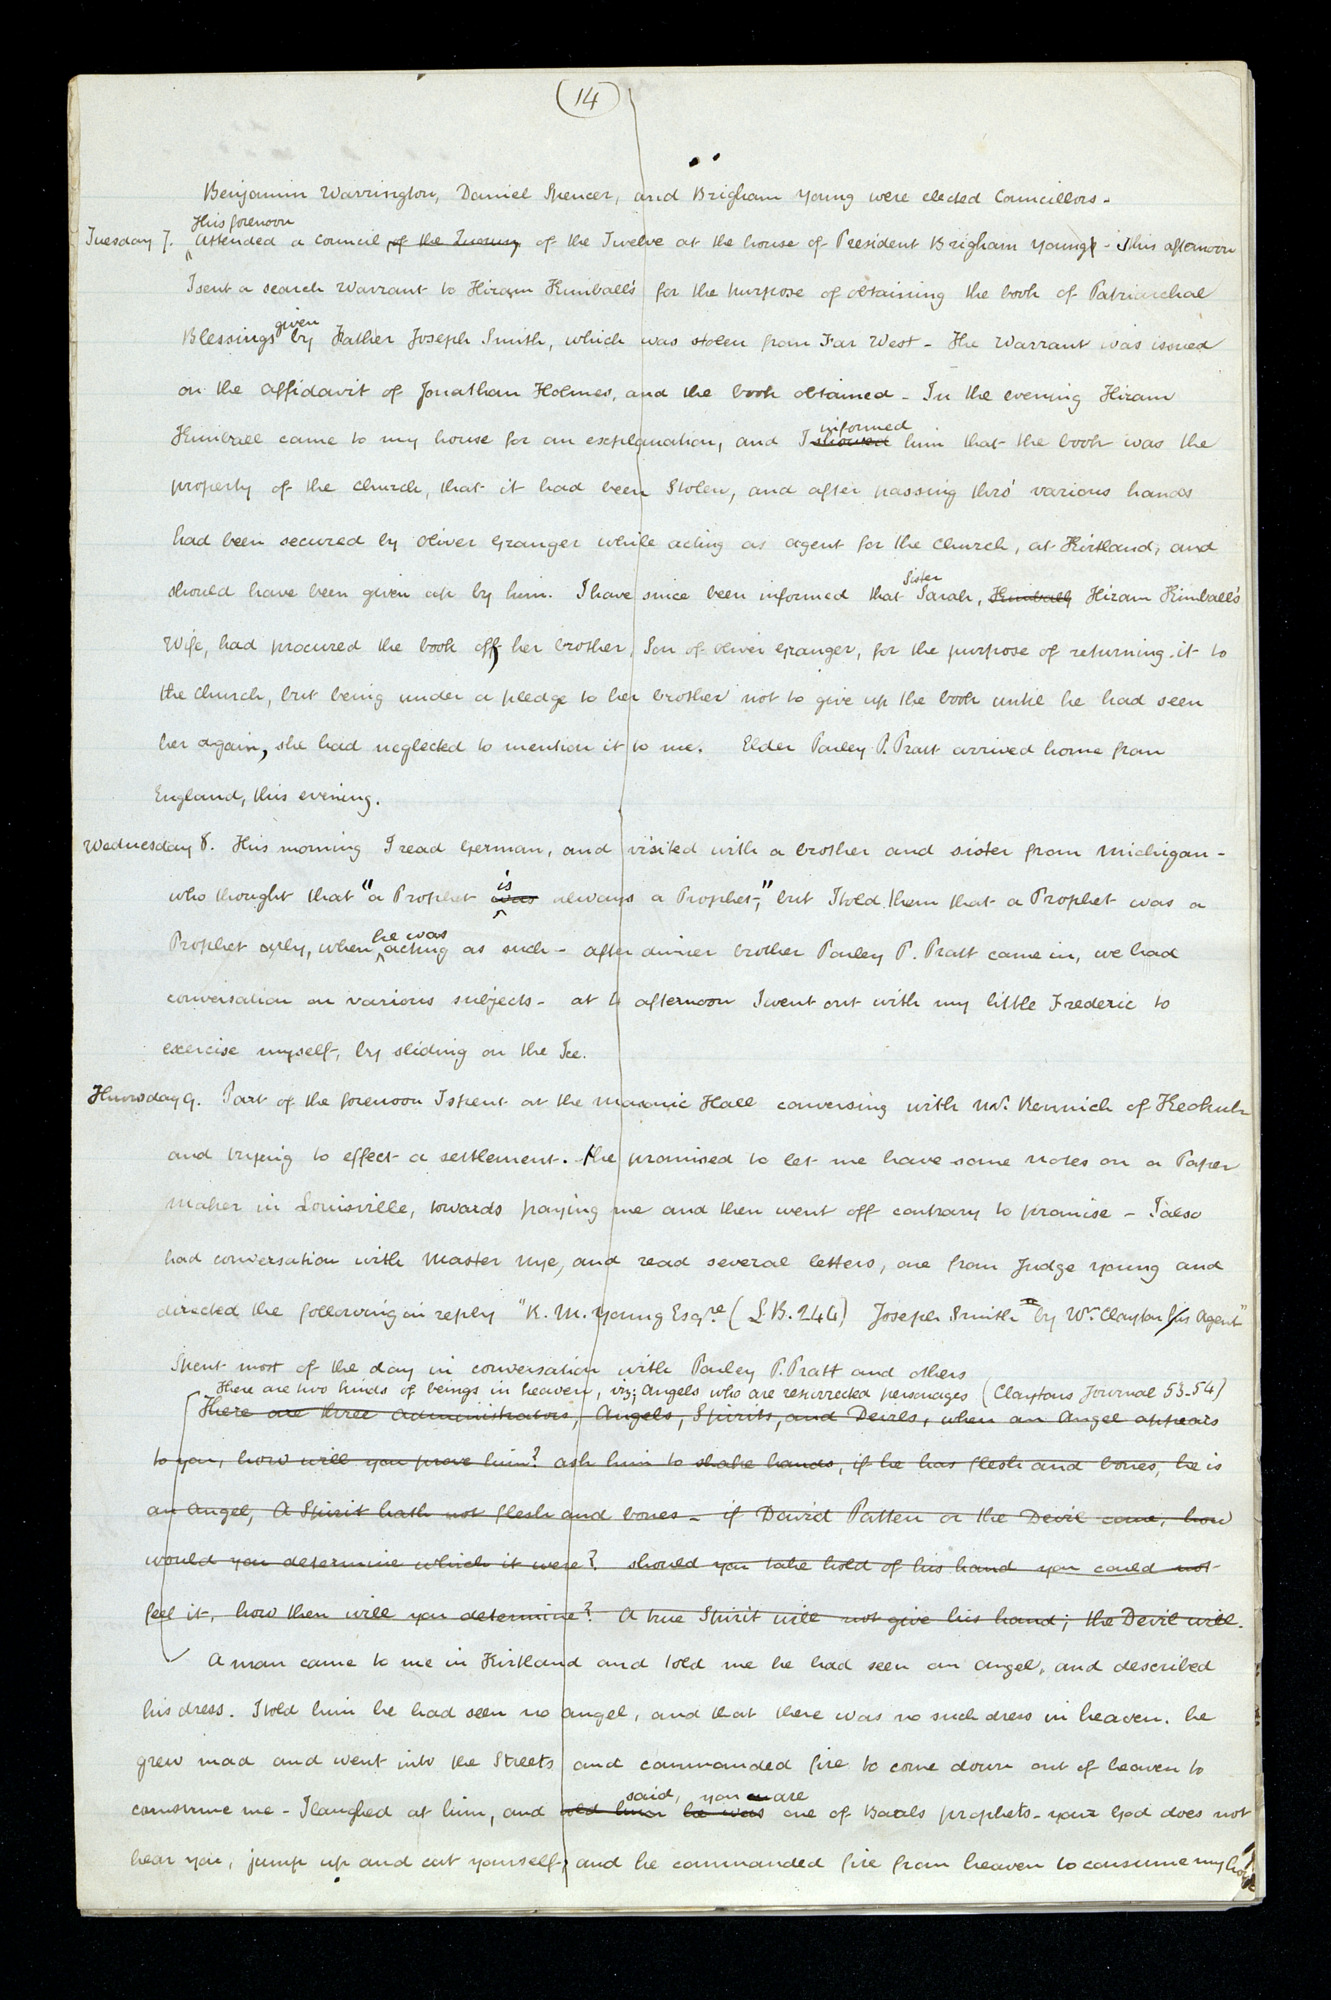 (14)
Benjamin Warrington, Daniel Spencer, and Brigham Young were elected Councillors.
This forenoon
Tuesday 7. Attended a council of the Twelve at the house of President Brigham Young - This afternoon
I sent a search Warrant to Hiram Kimball's for the purpose of obtaining the book of Patriarchal
given
Blessings by Father Joseph Smith, which was stolen from Far West - The Warrant was issued
on the affidavit of Jonathan Holmes, and the book obtained - In the evening Hiram
informed
Kimball came to my house for an explanation, and I showed him that the book was the
property of the church, that it had been Stolen, and after passing thro' various hands
had been secured by Oliver Granger while acting as agent for the church, at Kirtland, and
Sister
should have been given up by him. I have since been informed that Sarah, Kimball Hiram Kimball's
Wife, had procured the book off her brother, Son of Oliver Granger, for the purpose of returning it to
the church, but being under a pledge to her brother not to give up the book until he had seen
her again, she had neglected to mention it to me. Elder Parley P. Pratt arrived home from
England, this evening.
Wednesday 8. This morning I read German, and visited with a brother and sister from Michigan -
is
who thought that "a Prophet was always a Prophet;" but I told them that a Prophet was a
he was
Prophet only, when acting as such - after dinner brother Parley P. Pratt came in, we had
conversation on various subjects - at 4 afternoon I went out with my little Frederic to
exercise myself, by sliding on the Ice.
Thursday 9. Part of the forenoon I spent at the Masonic Hall conversing with Mr. Rennick of Keokuk
and trying to effect a settlement. he promised to let me have some notes on a Paper
maker in Louisville, towards paying me and then went off contrary to promise - I also
had conversation with Master Nye, and read several letters, one from Judge Young and
directed the following in reply "R. M. Young Esqre. (L.B. 244) Joseph Smith by Wm. Clayton his Agent"
Spent most of the day in conversation with Parley P. Pratt and others
There are two kinds of beings in heaven, viz; Angels who are resurrected personages (Claytons Journal 53-54)
There are three administrators, Angels, Spirits, and Devils, when an Angel appears
to you, how will you prove him? ask him to shake hands, if he has flesh and bones, he is
an Angel, A Spirit hath not flesh and bones - if David Patten or the Devil came, how
would you determine which it were? should you take hold of his hand you could not
feel it, how then will you determine? A true Spirit will not give his hand; the Devil will.
A man came to me in Kirtland and told me he had seen an angel, and described
his dress. I told him he had seen no angel, and that there was no such dress in heaven. he
grew mad and went into the Streets and commanded fire to come down out of heaven to
said, you are
consume me - I laughed at him, and told him he was one of Baals prophets - your God does not
hear you, jump up and cut yourself, and he commanded fire from heaven to consume my house